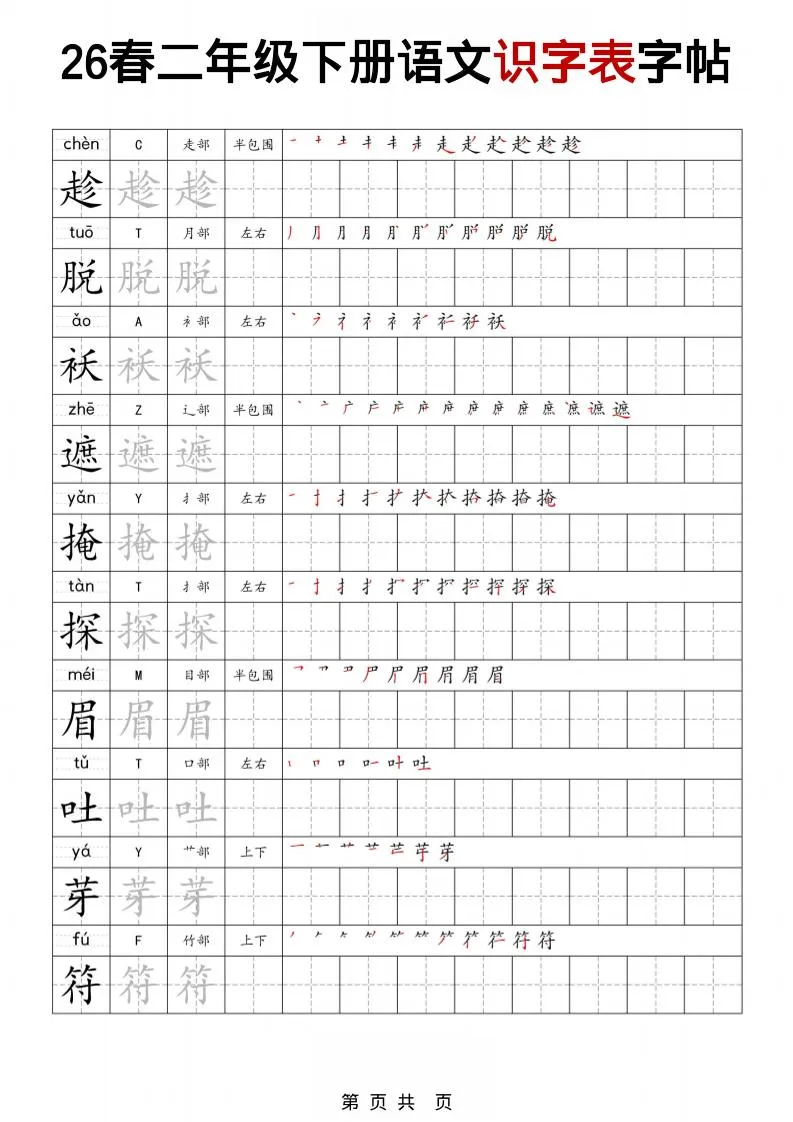 26春二年级下册语文识字表字帖
chèn C 走部 半包围
趁 趁 趁
tuō T 月部 左右
脱 脱 脱
ǎo A 衤部 左右
袄 袄 袄
zhē Z 辶部 半包围
遮 遮 遮
yǎn Y 扌部 左右
掩 掩 掩
tàn T 扌部 左右
探 探 探
méi M 目部 半包围
眉 眉 眉
tǔ T 口部 左右
吐 吐 吐
yá Y 艹部 上下
芽 芽 芽
fú F 竹部 上下
符 符 符
第 页 共 页